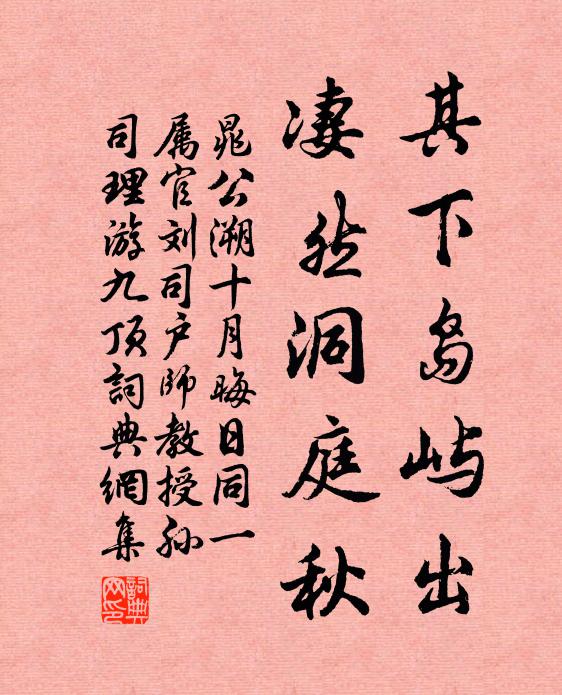 其下岛屿出
凄然洞庭秋
晁公溯十月晦日同一
属官刘司户师教授孙
司理游九顶詞典網集
詞典网印